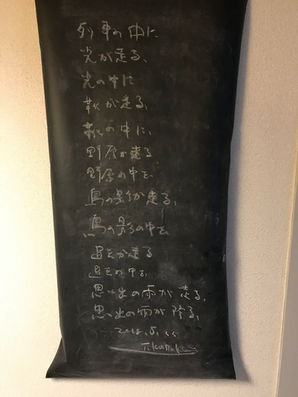 列車の中に
光が走る、
光の中に
靴が走る、
靴の中に、
野原が走る
野原の中を
鳥の影が走る、
鳥の影の中を
が走る
の中を、
思い出の雨が走る、
思い出の雨が降る、